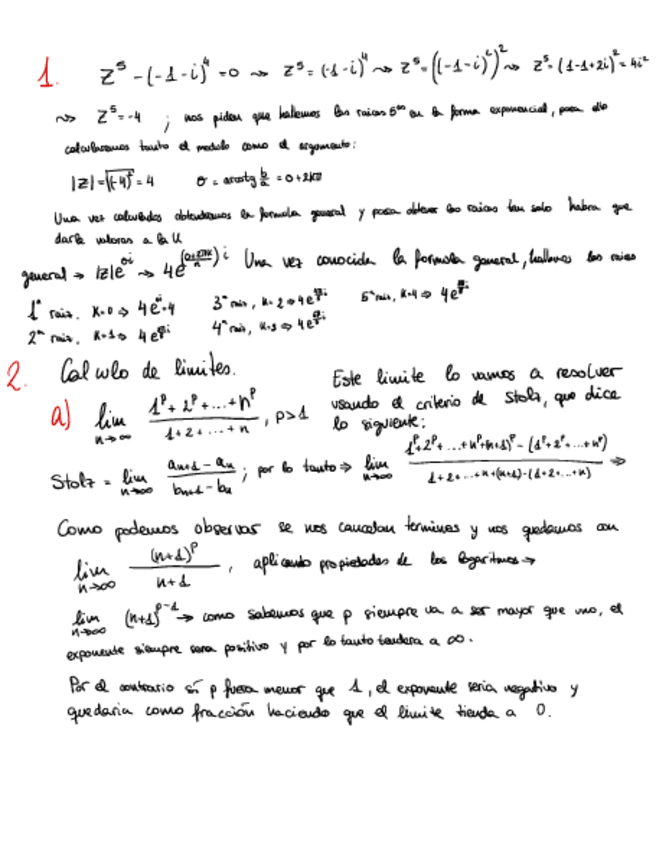 1. Z^5 - (-1-i)^4 = 0 ⇝ Z^5 = (-1-i)^4 ⇝ Z^5 = ((-1-i)^2)^2 ⇝ Z^5 = (1-1+2i)^2 = 4i^2
⇝ Z^5 = -4 ; nos piden que hallemos las raices 5^as en la forma exponencial, para ello
calcularemos tanto el modulo como el argumento:
|Z| = √(-4)^2 = 4 θ = arctg b/a = 0+2kπ
Una vez calculados obtendremos la formula general y para obtener las raices tan solo habra que
darle valores a la K
general → |z|e^{θi} ⇝ 4e^{()i} Una vez conocida la formula general, hallamos las raices
1ª raiz. K=0 ⇒ 4e 3ª raiz, K=2 ⇒ 4e 5ª raiz, K=4 ⇒ 4e
2ª raiz. K=1 ⇒ 4e 4ª raiz, K=3 ⇒ 4e
2. Calculo de limites.
a) lim n→∞ (1^p + 2^p + ... + n^p)/(1+2+...+n), p>1 Este limite lo vamos a resolver
usando el criterio de Stolz, que dice
lo siguiente:
Stolz = lim n→∞ (a_{n+1} - a_n)/(b_{n+1} - b_n) ; por lo tanto ⇒ lim n→∞ (1^p+2^p+...+n^p+(n+1)^p - (1^p+2^p+...+n^p))/(1+2+...+n+(n+1)-(1+2+...+n)) ⇒
Como podemos observar se nos cancelan terminos y nos quedamos con
lim n→∞ (n+1)^p/(n+1), aplicando propiedades de los logaritmos →
lim n→∞ (n+1)^{p-1} → como sabemos que p siempre va a ser mayor que uno, el
exponente siempre sera positivo y por lo tanto tendera a ∞.
Por el contrario si p fuera menor que 1, el exponente seria negativo y
quedaria como fracción haciendo que el limite tienda a 0.